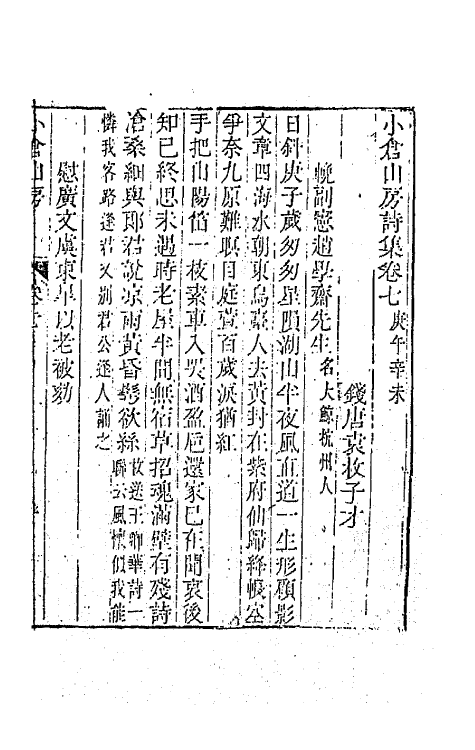 小倉山房詩集卷七 庚午辛未
錢唐袁枚子才
輓副憲趙學齋先生 名大鯨杭州人
日斜庚子歲匆匆星隕湖山半夜風直道一生形顧影
文章四海水朝東烏臺人去黃封在紫府仙歸絳帳空
爭奈九原難瞑目庭萱百歲淚猶紅
手把山陽笛一枝素車入哭酒盈卮還家已在聞哀後
知己終思未遇時老屋半間無宿草招魂滿壁有殘詩
滄桑細與郎君說凉雨黃昏鬢欲絲 故送王卿華詩一聯云風懷似我能
憐我客路逢君又別君公逢人誦之
慰廣文虞東皋以老被劾
小倉山房 卷七